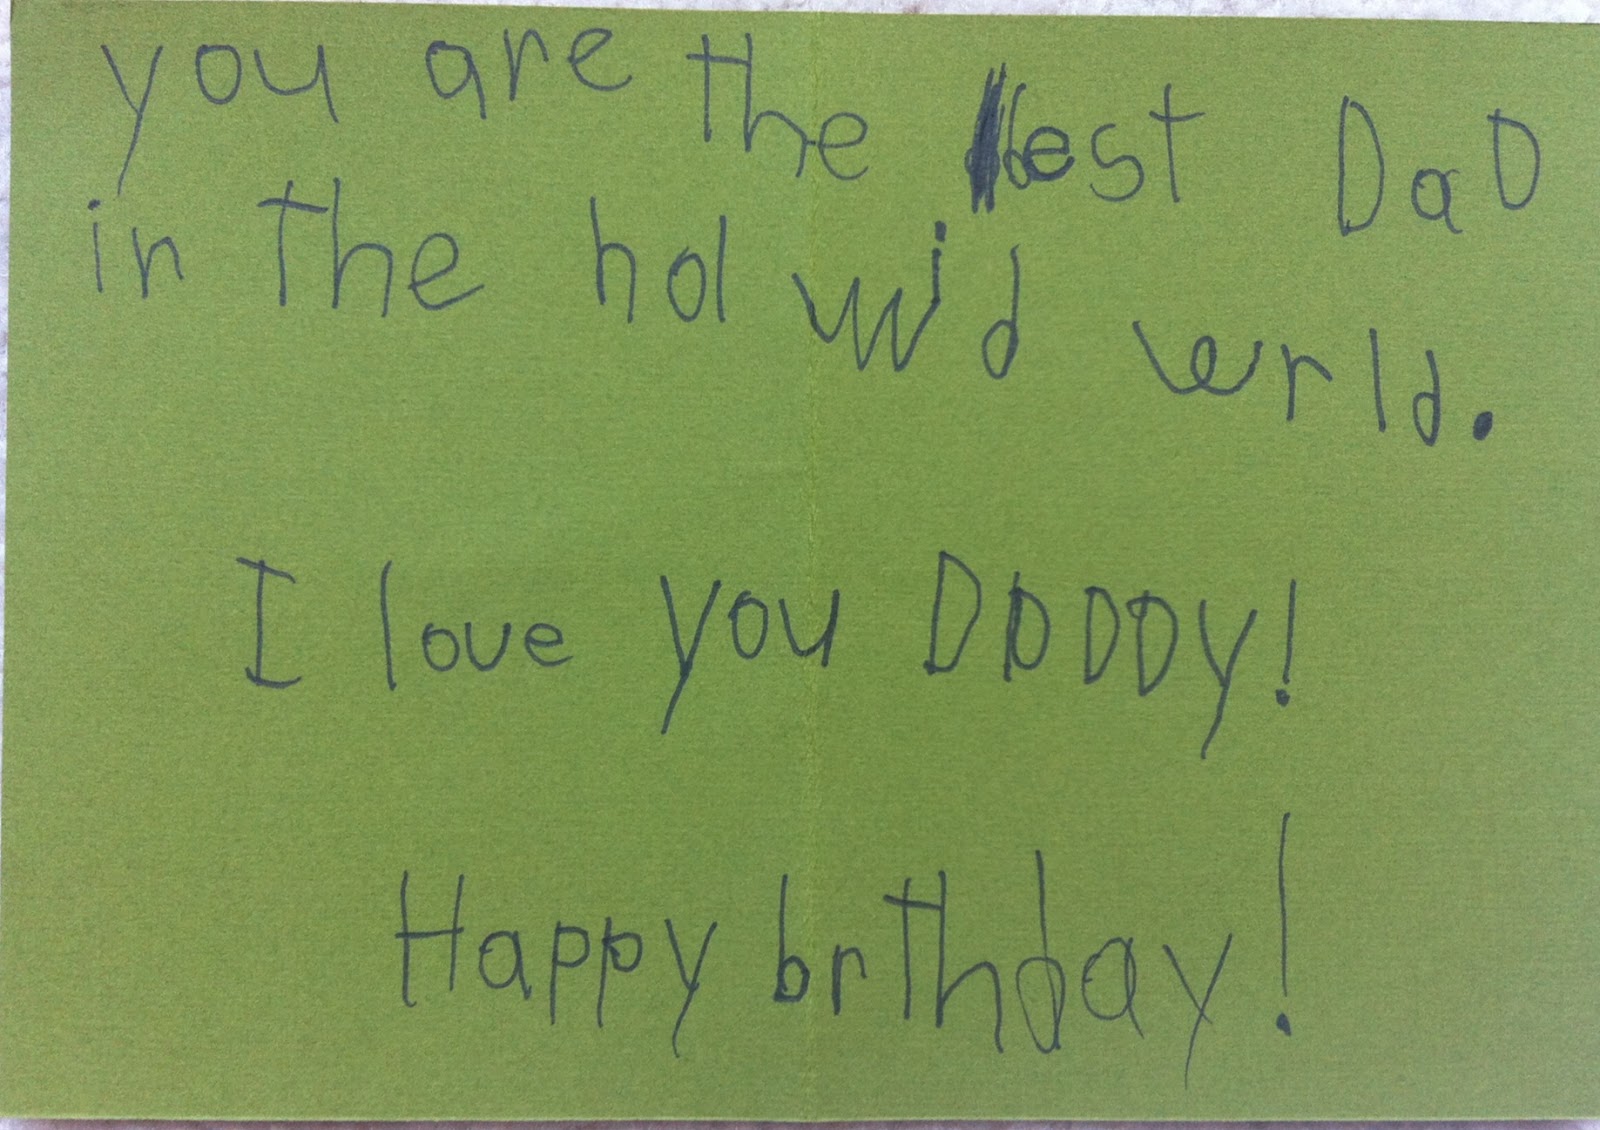 you are the best DaD
in the hol wid werld.
I love you DDDDy!
Happy brthday!